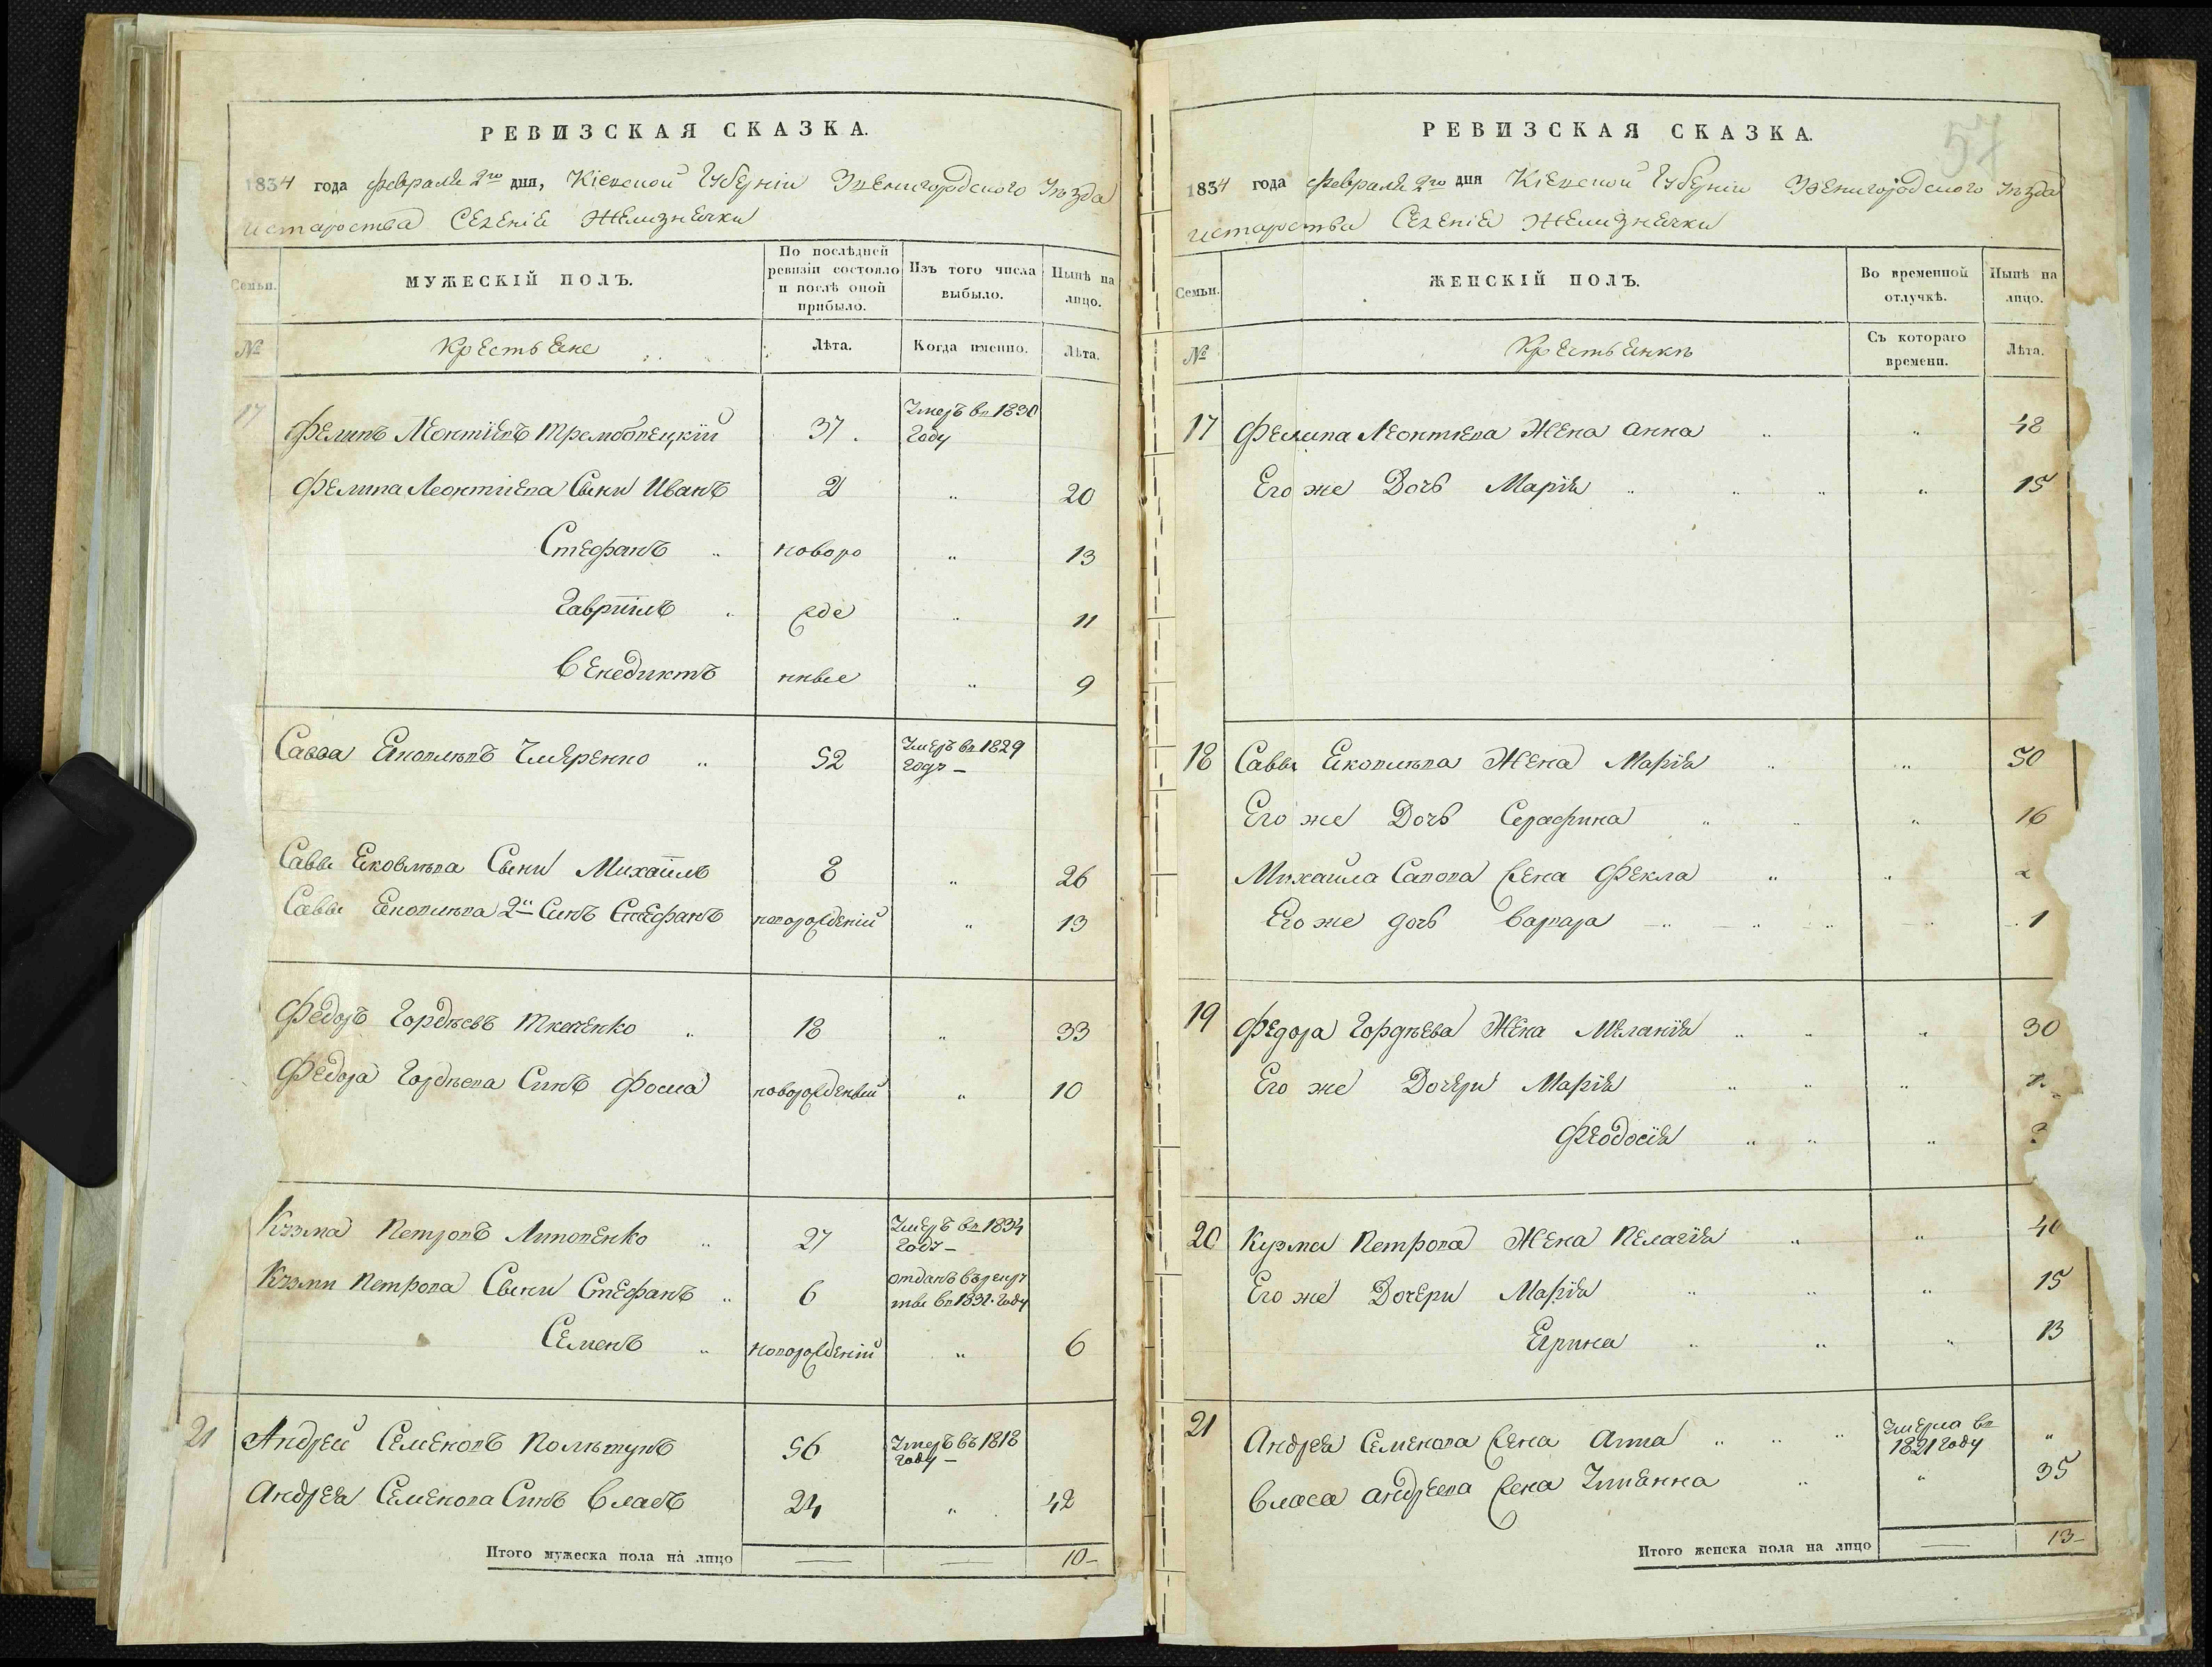 РЕВИЗСКАЯ СКАЗКА.
1834 года февраля 2го дня, Кіевской Губерніи Звенигородского Уѣзда
староства Селеніе Желизнячки
Семьи.
МУЖЕСКІЙ ПОЛЪ.
По послѣдней ревизіи состояло и послѣ оной прибыло.
Изъ того числа выбыло.
Нынѣ на лицо.
№
Крестьяне
Лѣта.
Когда именно.
Лѣта.
17 Фелипъ Леонтіевъ 37. Умеръ въ 1830
Году
Фелипа Леонтиева Сыни Иванъ 2 " 20
Стефанъ " новоро " 13
Гавріилъ " жде " 11
Венедиктъ нные " 9
Савва Яковлѣвъ Чмеренко " 52 Умеръ въ 1829
Годѣ
Саввы Яковлѣва Сыни Михаилъ 8 " 26
Саввы Яковлѣва 2й Синъ Стефанъ новорожденій " 13
Федоръ Гордѣевъ Ткаченко " 18 " 33
Федора Гордѣева Синъ Фома новорожденый " 10
Кузма Петровъ Липовенко " 27 Умеръ въ 1834
Годѣ
Кузми Петрова Сыни Стефанъ " 6 отданъ въ рекру
ты въ 1831 Году
Семенъ " новорожденій " 6
21 Андрей Семеновъ Полѣтунъ 56 Умеръ въ 1818
Году
Андрея Семенова Синъ Власъ 24 " 42
Итого мужеска пола на лицо 10
57
РЕВИЗСКАЯ СКАЗКА.
1834 года Февраля 2го дня Кіевской Губерніи Звенигородского Уѣзда
староства Селеніе Желизнячки
Семьи.
ЖЕНСКІЙ ПОЛЪ.
Во временной отлучкѣ.
Нынѣ на лицо.
№
Крестьянкѣ
Съ котораго времени.
Лѣта.
17 Фелипа Леонтева Жена Анна " " 48
Его же Дочь Марія " " " " 15
18 Саввы Яковлѣва Жена Марія " " 50
Его же Дочь Серафина " " " 16
Михаила Савова жена Фекла " "
Его же дочь Варвара " " " 1
19 Федора Гордѣева Жена Меланія " " " 30
Его же Дочери Марія " " "
Феодосія " " "
20 Кузмы Петрова Жена Пелагія " " 40
Его же Дочери Марія " " " 15
Ярина " " " 13
21 Андрея Семенова жена Анна " " " Умерла въ
1821 Году "
Власа Андреева жена Улиянна " " 35
Итого женска пола на лицо 13